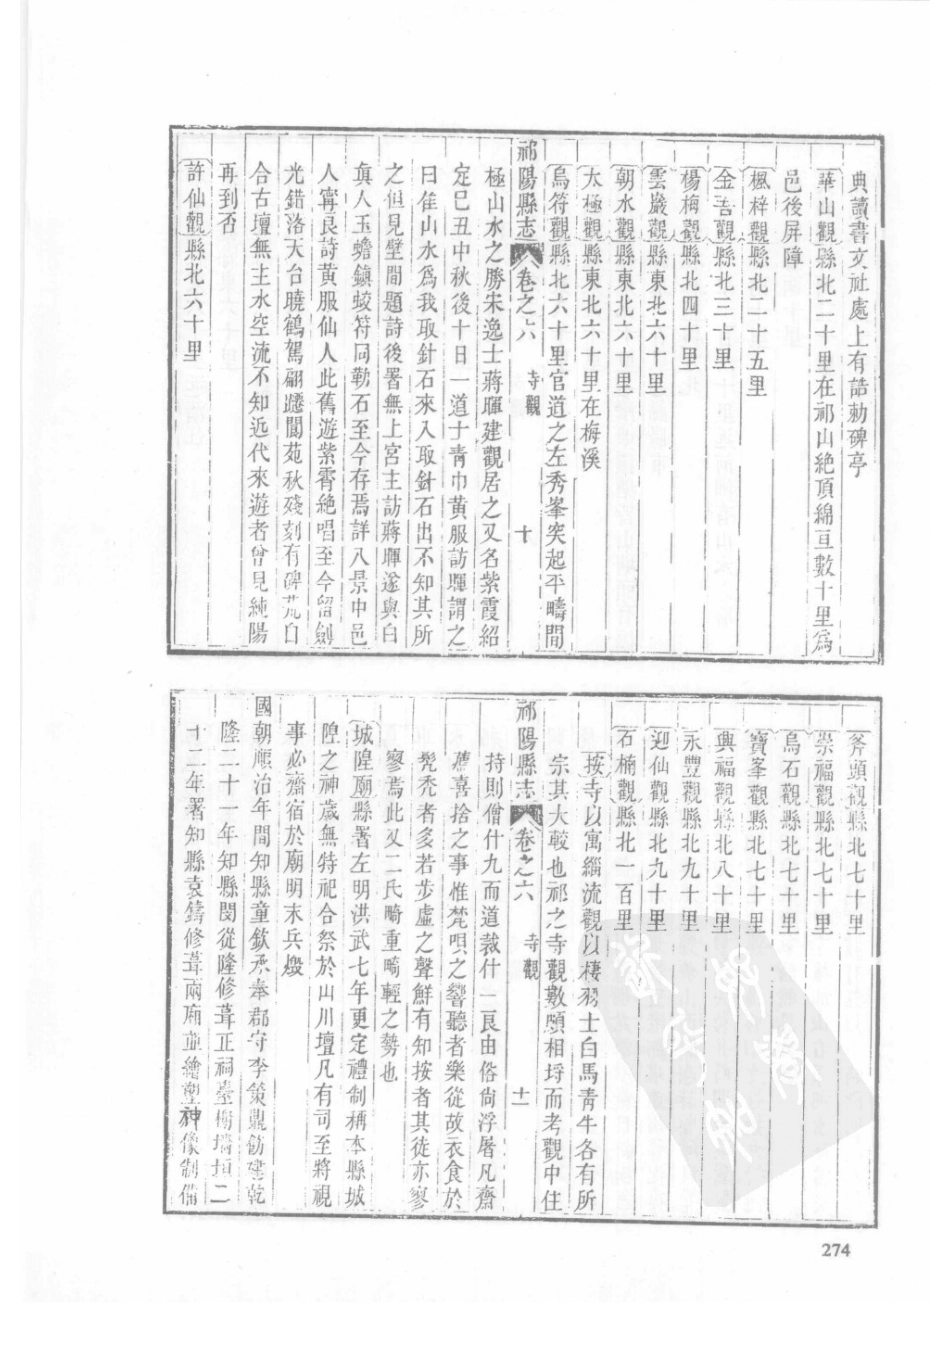 典讀書文社處上有誥勅碑亭
華山觀縣北二十里在祁山絶頂綿亘數十里爲
邑後屏障
楓梓觀縣北二十五里
金吾觀縣北三十里
楊梅觀縣北四十里
雲巖觀縣東北六十里
朝水觀縣東北六十里
太極觀縣東北六十里在梅溪
烏符觀縣北六十里官道之左秀峯突起平疇間
祁陽縣志 卷之六 寺觀 十
極山水之勝宋逸士蔣暉建觀居之又名紫霞紹
定己丑中秋後十日一道士青巾黄服訪暉謂之
曰佳山水爲我取針石來入取針石出不知其所
之但見壁間題詩後署無上宮主訪蔣暉遂與白
真人玉蟾鎮蛟符同勒石至今存焉詳八景中邑
人甯良詩黄服仙人此舊遊紫霄絶唱至今留劍
光錯洛天台曉鶴駕翩躚閬苑秋殘刻有碑荒白
合古壇無主水空流不知近代來遊者曾見純陽
再到否
許仙觀縣北六十里
斧頭觀縣北七十里
崇福觀縣北七十里
烏石觀縣北七十里
寶峯觀縣北七十里
興福觀縣北八十里
永豐觀縣北九十里
迎仙觀縣北九十里
石楠觀縣北一百里
按寺以寓緇流觀以棲羽士白馬青牛各有所
宗其大較也祁之寺觀數頗相埒而考觀中住
祁陽縣志 卷之六 寺觀 十一
持則僧什九而道裁什一良由俗尚浮屠凡齋
薦喜捨之事惟梵唄之響聽者樂從故衣食於
髡禿者多若步虛之聲鮮有知按者其徒亦寥
寥焉此又二氏畸重畸輕之勢也
城隍廟縣署左明洪武七年更定禮制稱本縣城
隍之神歲無特祀合祭於山川壇凡有司至將視
事必齋宿於廟明末兵燬
國朝順治年間知縣童欽承奉郡守李策鼎飭建乾
隆二十一年知縣閔從隆修葺正祠臺榭墻垣二
十二年署知縣袁鑄修葺兩廂並繪塑神像制備
274